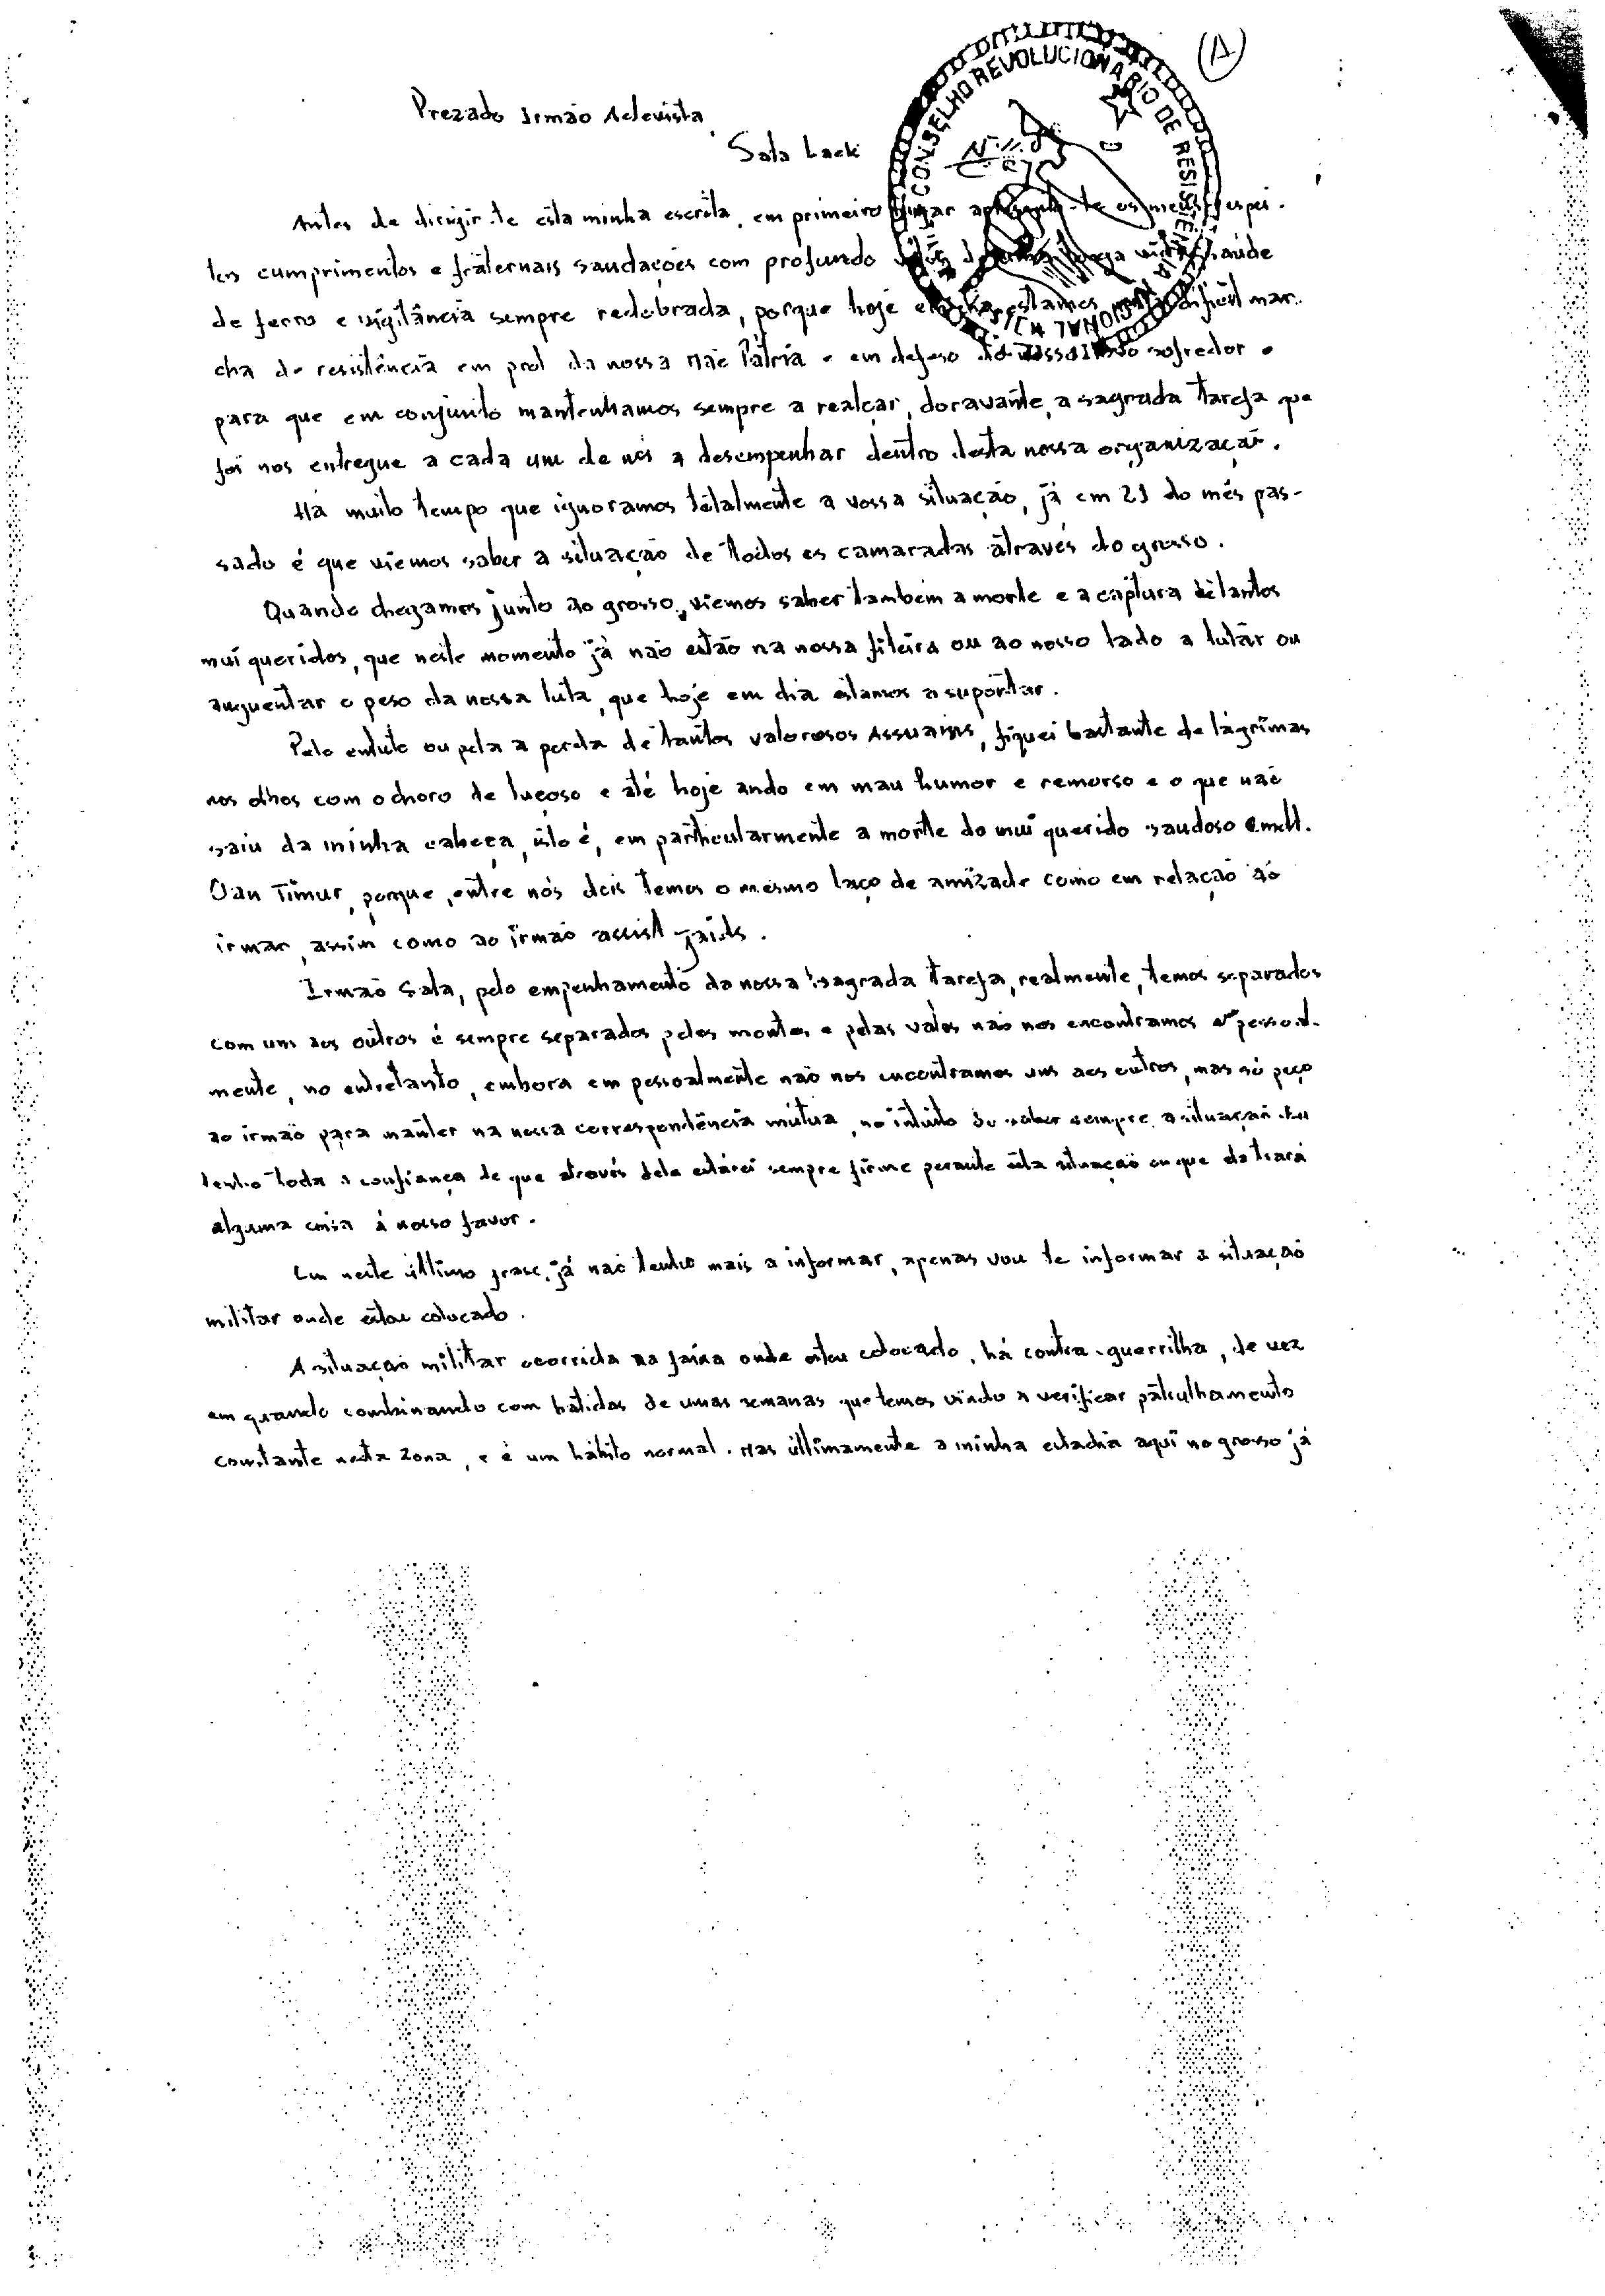 Prezado Irmão Adevista,
Sala Lack
CONSELHO REVOLUCIONÁRIO DE RESISTÊNCIA NACIONAL
Antes de dirigir-te esta minha escrita, em primeiro lugar te os meus respei-
tos cumprimentos e fraternais saudações com profundo vida saúde
de ferro e vigilância sempre redobrada, porque hoje em dia estamos difícil mar-
cha de resistência em prol da nossa Mãe Pátria e em defesa do nosso sofredor e
para que em conjunto mantenhamos sempre a realçar, doravante, a sagrada tarefa que
foi nos entregue a cada um de nós a desempenhar dentro desta nossa organização.
Há muito tempo que ignoramos totalmente a vossa situação, já em 21 do mês pas-
sado é que viemos saber a situação de todos os camaradas através do grosso.
Quando chegamos junto ao grosso, viemos saber tambem a morte e a captura de tantos
mui queridos, que neste momento já não estão na nossa fileira ou ao nosso lado a lutar ou
auguentar o peso da nossa luta, que hoje em dia estamos a suportar.
Pelo ou pela a perda de tantos valorosos Assuains, fiquei bastante de lágrimas
nos olhos com o choro de e até hoje ando em mau humor e remorso e o que não
saiu da minha cabeça, isto é, em particularmente a morte do mui querido saudoso
Oan Timur, porque, entre nós dois temos o mesmo laço de amizade como em relação ao
irmão, assim como ao irmão assist
Irmão Sala, pelo empenhamento da nossa sagrada tarefa, realmente, temos separados
com uns aos outros é sempre separados pelos montes e pelas vales não nos encontramos pessoal-
mente, no entretanto, embora em pessoalmente não nos encontramos uns aos outros, mas só peço
ao irmão para manter na nossa correspondência mútua, no intuito de saber sempre a situação. Eu
tenho toda a confiança de que através dela estarei sempre firme perante esta situação em que ela trará
alguma coisa á nosso favor.
Em neste último frase, já não tenho mais a informar, apenas vou te informar a situação
militar onde estou colocado.
A situação militar ocorrida na faixa onde estou colocado, há contra-guerrilha, de vez
em quando combinando com batidas de umas semanas que temos vindo a verificar patrulhamento
constante nesta zona, e é um hábito normal. Mas últimamente a minha estadia aqui no grosso já